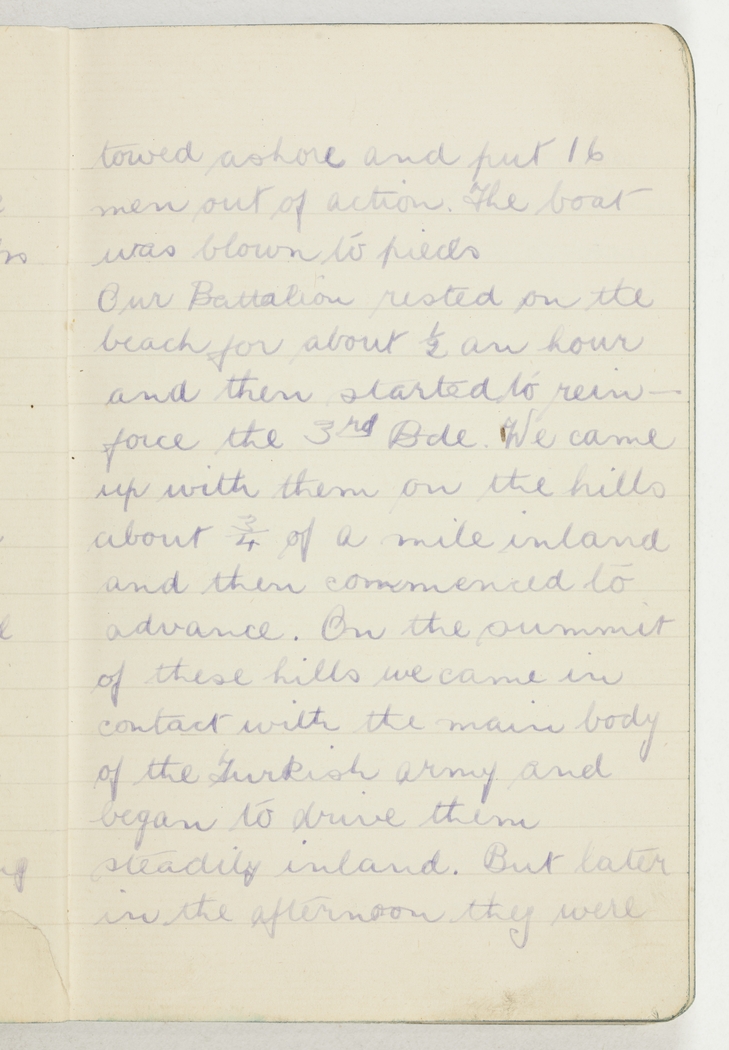 towed ashore and put 16
men out of action. The boat
was blown to pieds
Our Battalion rested on the
beach for about ½ an hour
and then started to rein-
force the 3rd Bde. We came
up with them on the hills
about ¾ of a mile inland
and then commenced to
advance. On the summit
of these hills we came in
contact with the main body
of the Turkish army and
began to drive them
steadily inland. But later
in the afternoon they were